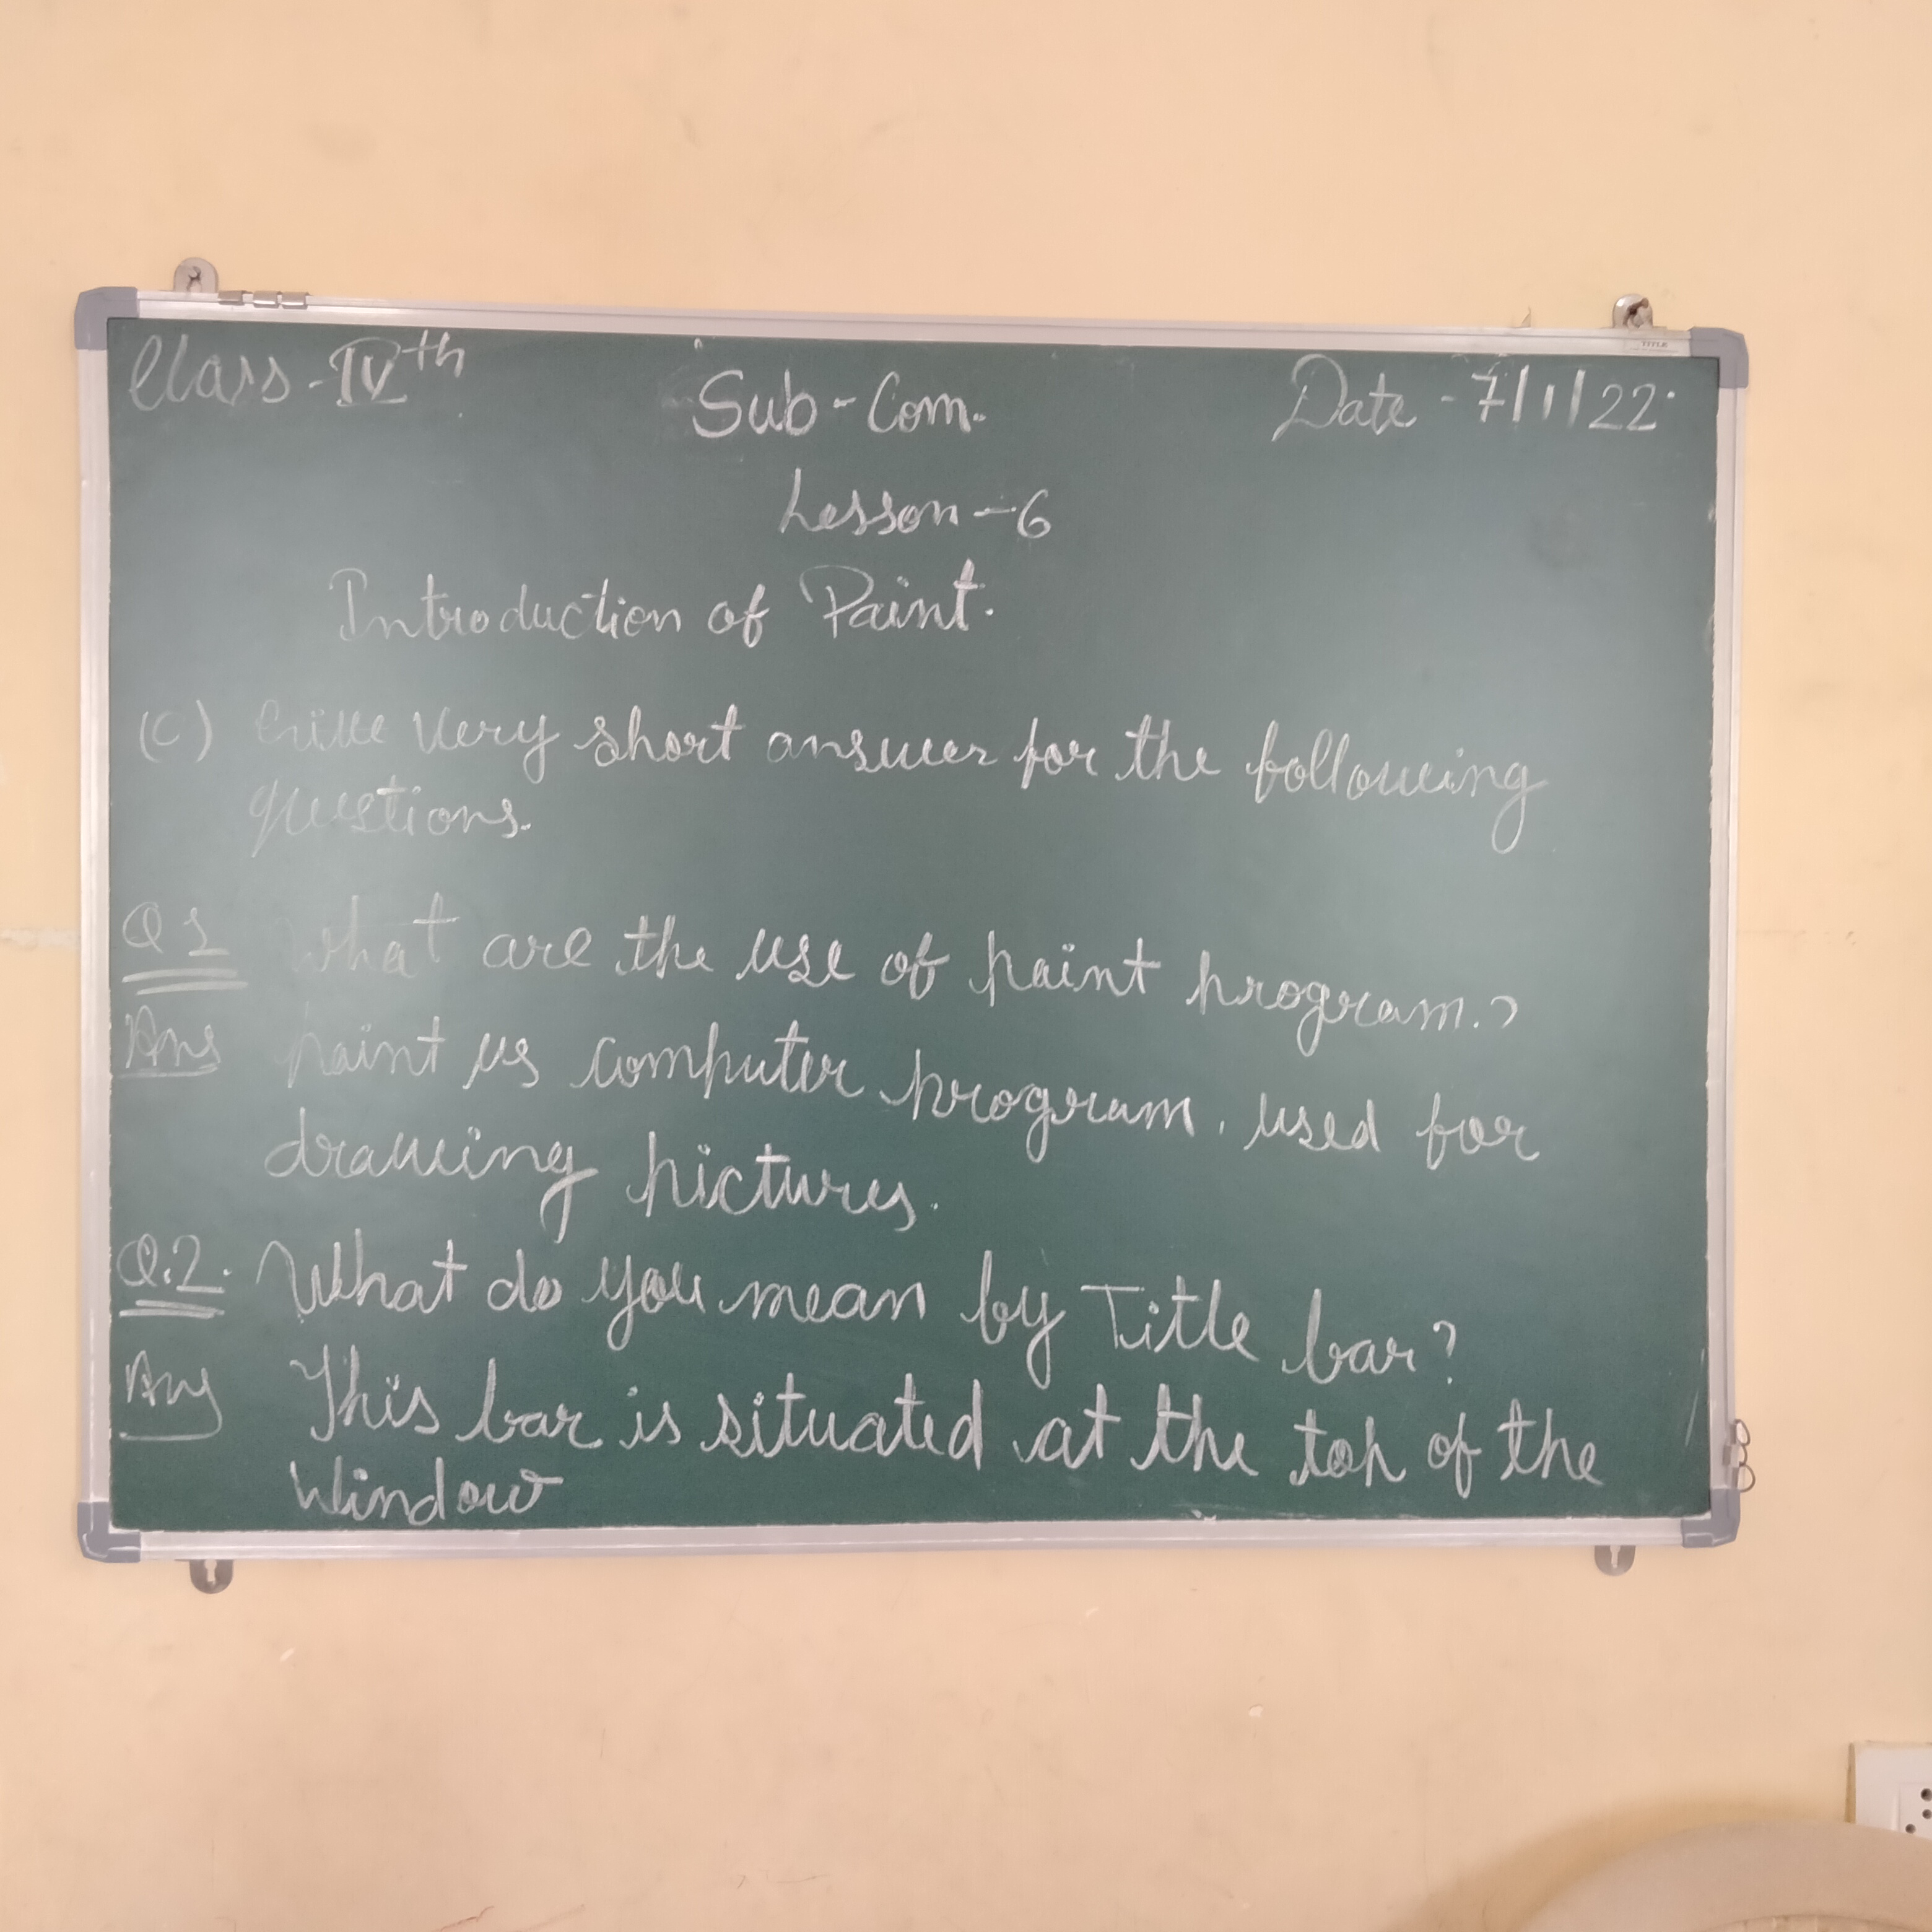 Class - IVth Sub - Com. Date - 7/1/22.
Lesson - 6
Introduction of Paint.
(C) Write Very short answer for the following
questions.
Q 1 What are the use of paint program.?
Ans paint us computer program. used for
drawing pictures.
Q.2. What do you mean by Title bar?
Ans This bar is situated at the top of the
Window
TITLE